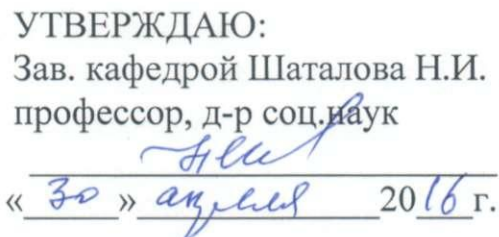 УТВЕРЖДАЮ:
Зав. кафедрой Шаталова Н.И.
профессор, д-р соц.наук
« 30 » апреля 2016 г.